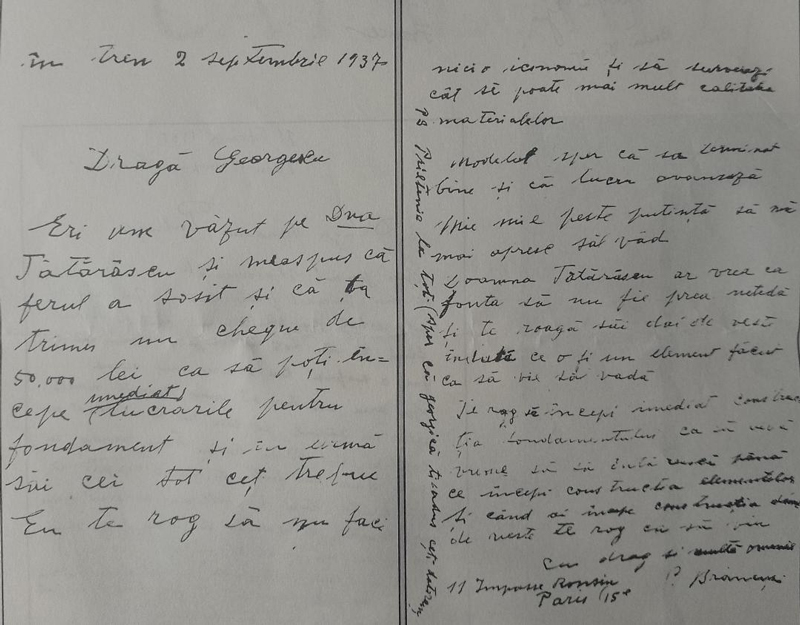 în tren 2 septembrie 1937
Dragă Georgescu
Eri am văzut pe Dna
Tătărăscu și measpus că
ferul a sosit și că ța
trimes un cheque de
50,000 lei ca să poți în=
cepe (imediat) lucrarile pentru
fondament și în urmă
săi cei tot ceț trebue
Eu te rog să nu faci
nicio iconomie și să
cât să poate mai mult calitatea
materialelor
Modelul sper că sa terminat
bine și că lucru avansează
Mie mie peste putință să mă
mai opresc săl văd
Doamna Tătărăscu ar vrea ca
fonta să nu fie prea netedă
și te roagă săi dai de veste
îndată ce o fi un element făcut
ca să vie să vadă
Te rog să începi imediat construc
ția fondamentului ca să aivă
vreme să să întărească până
ce începi constructia elementelor
Și când ai începe constructia dămi
de veste te rog ca să viu
cu drag și multă
C. Brâncuși
11 Impasse Ronsin
Paris (15e
PS Prietenie la toți (sper că george tia adus ceț datoram